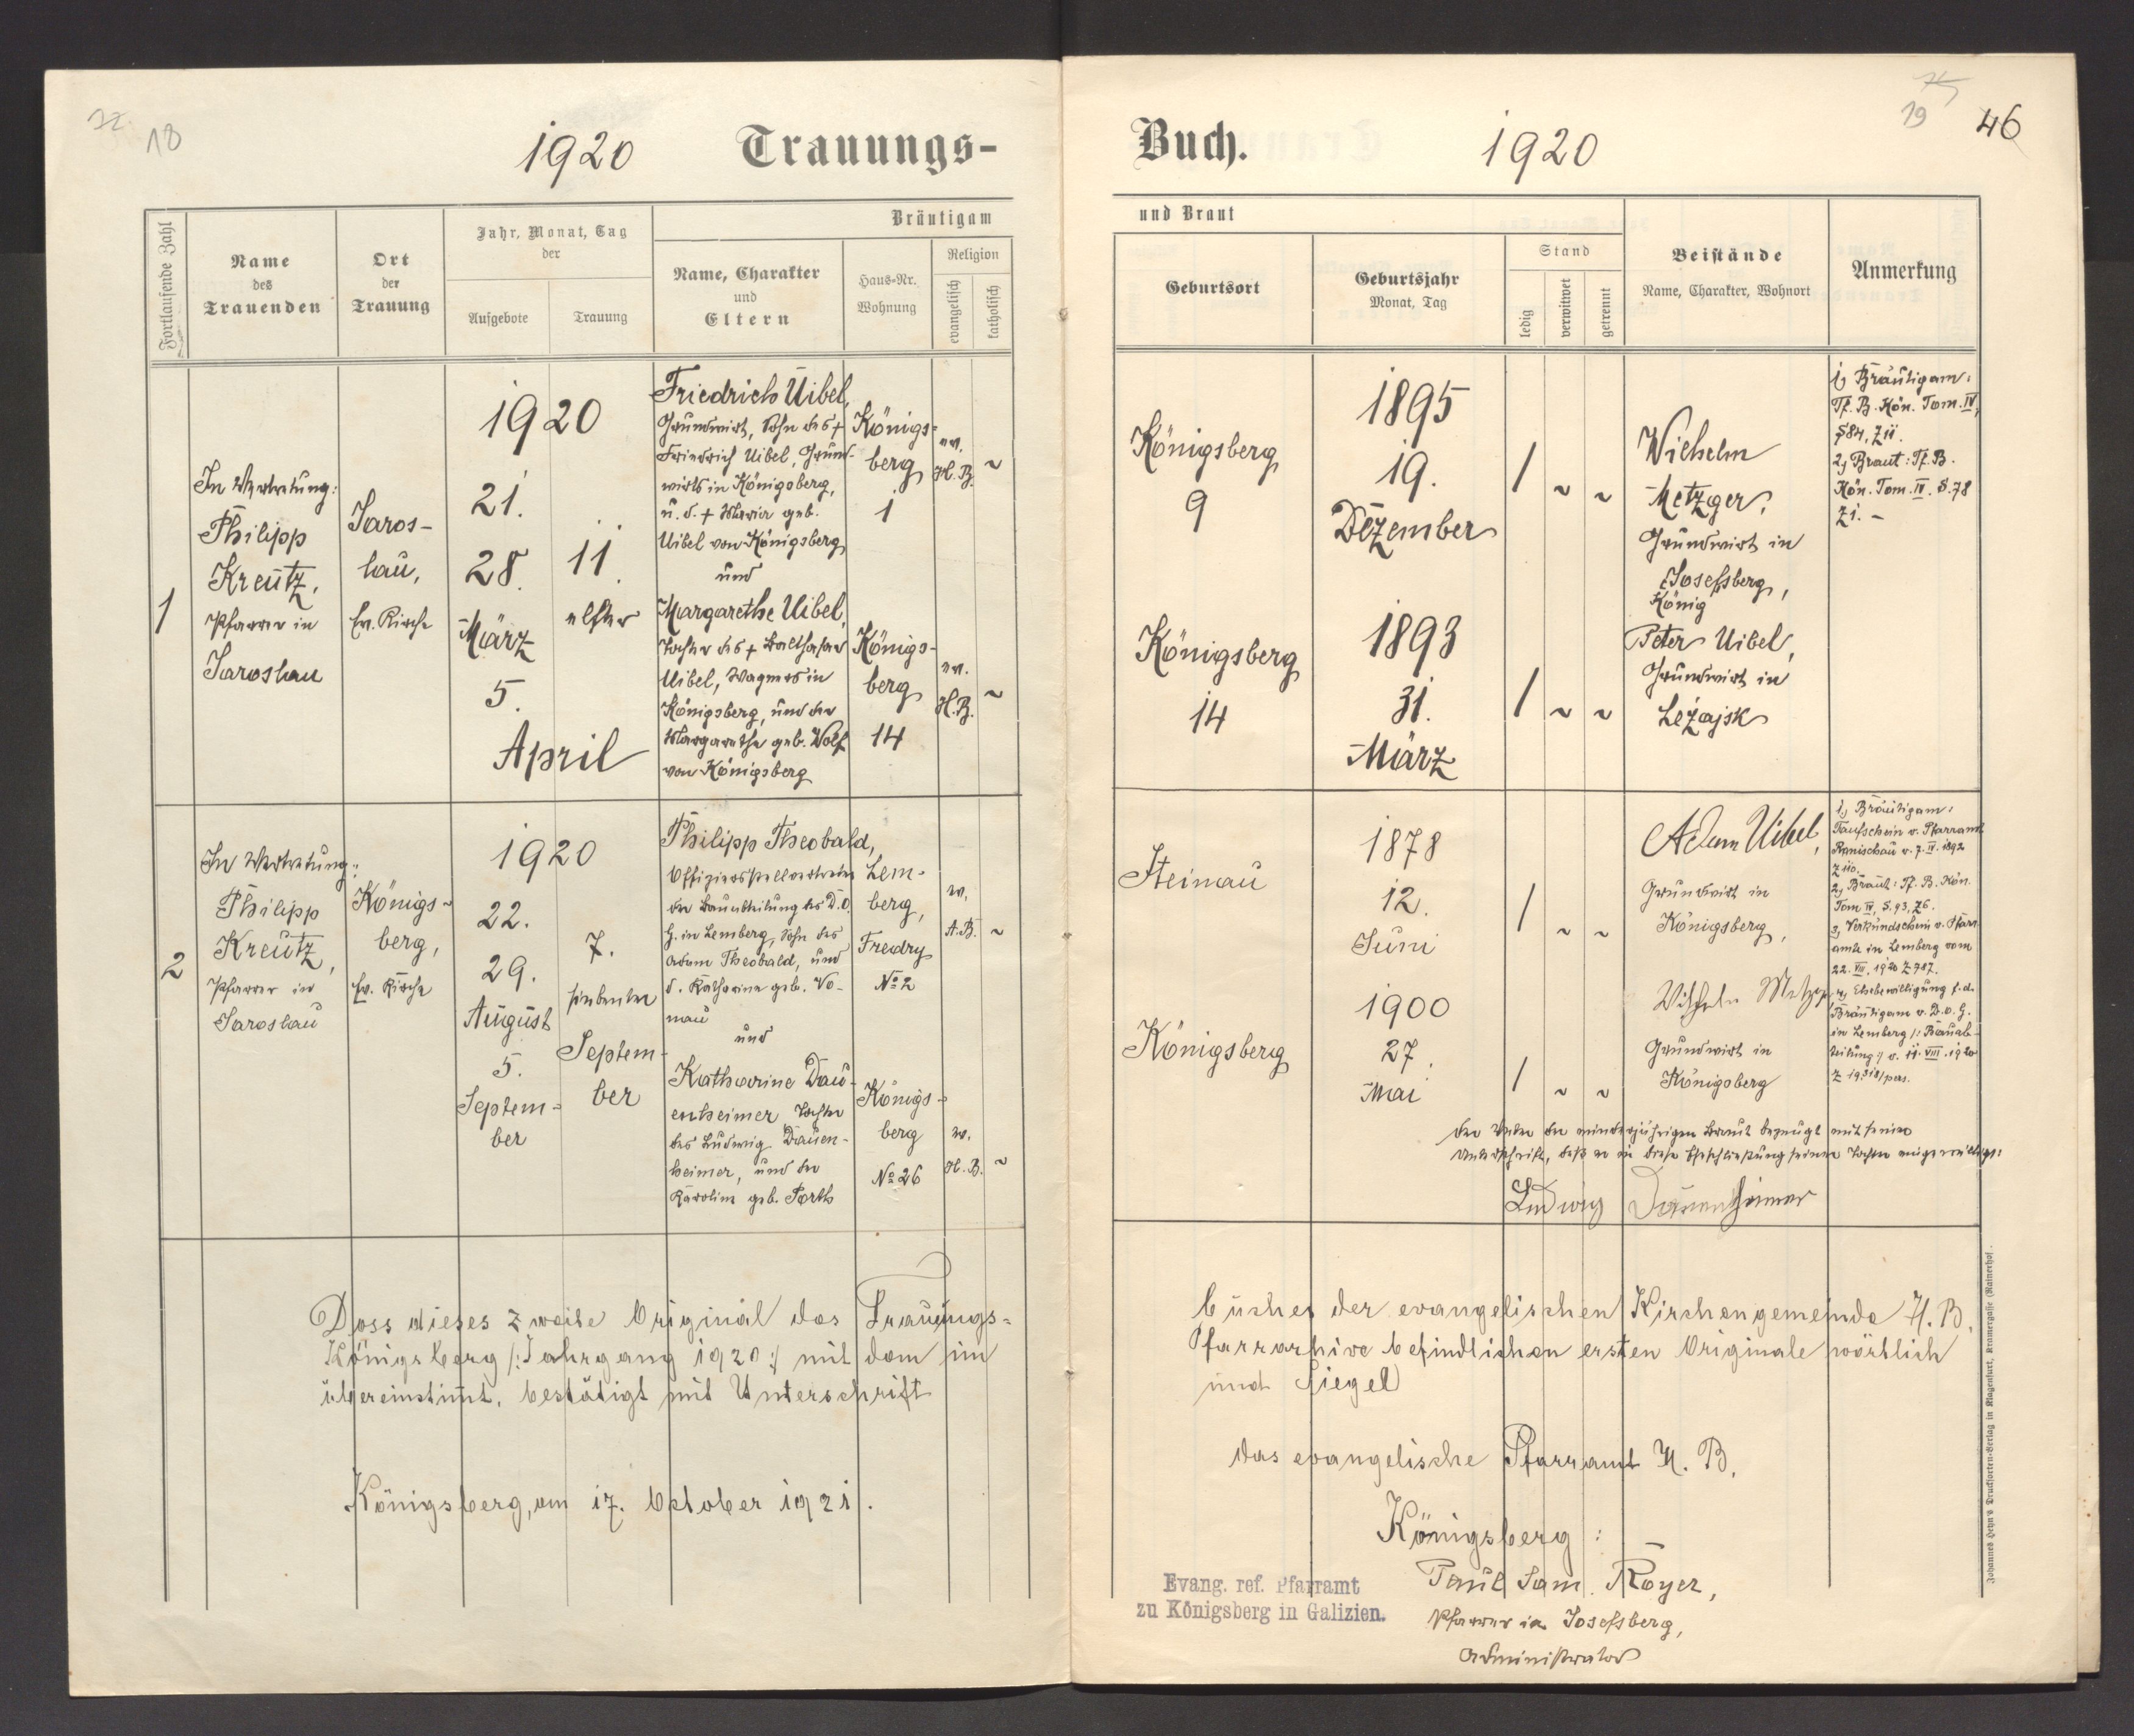 18
1920 Trauungs-
Fortlaufende Zahl
Name
des
Trauenden
Ort
der
Trauung
Jahr, Monat, Tag
der
Aufgebote
Trauung
Bräutigam
Name, Charakter
und
Eltern
Haus-Nr.
Wohnung
Religion
evangelisch
katholisch
1
In Vertretung:
Philipp
Kreutz,
Pfarrer in
Jaroslau
Jaros-
lau,
Ev. Kirche
1920
21.
28.
März
5.
April
11.
elfter
Friedrich Uibel,
Grundwirt, Sohn des +
Friedrich Uibel, Grund-
wirts in Königsberg,
u. d. + Maria geb.
Uibel von Königsberg
und
Margarethe Uibel,
Tochter des + Balthasar
Uibel, Wagners in
Königsberg, und der
Margarethe geb. Wolf
von Königsberg
Königs-
berg
1
Königs-
berg
14
ev.
H. B.
~
ev.
H. B.
~
2
In Vertretung:
Philipp
Kreutz,
Pfarrer in
Jaroslau
Königs-
berg,
Ev. Kirche
1920
22.
29.
August
5.
Septem-
ber
7.
siebenter
Septem-
ber
Philipp Theobald,
Offiziersstellvertreter
der Bauabteilung des D. O.
G. in Lemberg, Sohn des
Adam Theobald, und
d. Katharina geb. Vo-
nau
und
Katharine Dau-
enheimer Tochter
des Ludwig Dauen-
heimer, und der
Karoline geb. Porth
Lem-
berg,
Fredry
No 2
Königs-
berg
No 26
ev.
A. B.
~
ev.
H. B.
~
Dass dieses zweite Original des Trauungs-
Königsberg /: Jahrgang 1920 :/ mit dem im
übereinstimt, bestätigt mit Unterschrift
Königsberg, am 17. Oktober 1921.
19
46
Buch. 1920
und Braut
Geburtsort
Geburtsjahr
Monat, Tag
Stand
ledig
verwitwet
getrennt
Beistände
Name, Charakter, Wohnort
Anmerkung
Königsberg
9
1895
19.
Dezember
/ ~ ~
Wilhelm
Metzger,
Grundwirt in
Josefsberg,
König
1, Bräutigam:
Tf. B. Kön. Tom. IV,
S 84, Z 11.
2, Braut: Tf. B.
Kön. Tom. IV. S. 78
Z 1. -
Königsberg
14
1893
31.
März
/ ~ ~
Peter Uibel,
Grundwirt in
Leżajsk
Steinau
1878
12.
Juni
/ ~ ~
Adam Uibel,
Grundwirt in
Königsberg,
1, Bräutigam:
Taufschein v. Pfarramt
Ranischau v. 7. IV. 1892
Z 110.
2, Braut: Tf. B. Kön.
Tom IV, S. 93, Z 6.
3, Verkündschein v. Pfarr-
amte in Lemberg vom
22. VIII. 1920 Z 787.
4, Ehebewilligung f. d.
Bräutigam v. D. O. G.
in Lemberg /: Bauab-
teilung :/ v. 11. VIII. 1920
Z 19.318/pers.
Königsberg
1900
27.
Mai
/ ~ ~
Grundwirt in
Königsberg
Der Vater der minderjährigen Braut bezeugt mit seiner
Unterschrift, daß er in diese Eheschließung seiner Tochter eingewilligt:
Ludwig Dauenheimer
buches der evangelischen Kirchengemeinde H. B.
Pfarrarhive befindlichen ersten Originale wörtlich
und Siegel
das evangelische Pfarramt H. B.
Königsberg:
Evang. ref. Pfarramt
zu Königsberg in Galizien.
Paul Sam. Royer,
Pfarrer in Josefsberg,
Administrator
Johannes Heyn's Drucksorten-Verlag in Klagenfurt, Kramergasse (Rainerhof).